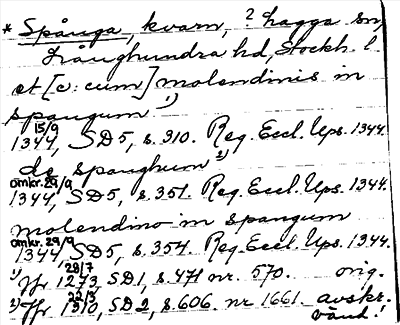 * Spånga, kvarn, ? Lagga sn,
Långhundra hd, Stockh. l.
et [c: cum] molendinis in
spangum 1)
1344 15/9, SD 5, s. 310. Reg. Eccl. Ups. 1344.
de spanghum 2)
1344 omkr. 29/9, SD 5, s. 351. Reg. Eccl. Ups. 1344.
molendino in spangum
1344 omkr. 29/9, SD 5, s. 354. Reg. Eccl. Ups. 1344.
1) Jfr 1273 29/7, SD 1, s. 471 nr. 570. orig.
2) Jfr 1310 22/3, SD 2, s. 606. nr 1661. avskr.
vänd!